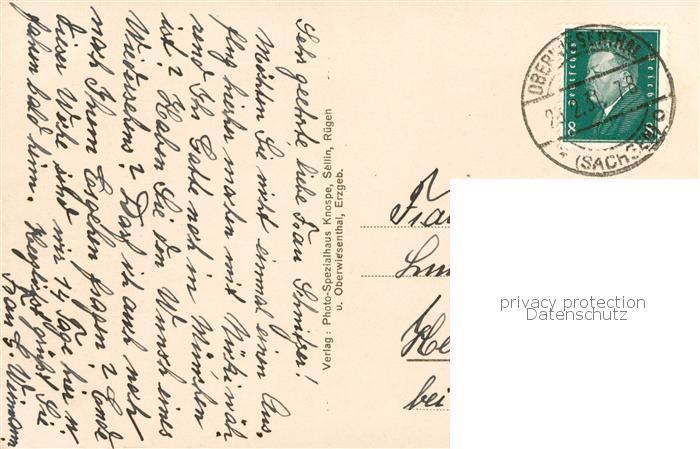 Sehr geehrte liebe Frau
Möchten Sie nicht einmal einen Aus-
flug hierher machen mit
und Ihr Gatte noch in München
ist? Haben Sie den Wunsch eines
Wiedersehens? Darf ich auch noch
nach Ihrem Ergehen fragen? Ende
dieser Woche sind wir 14 Tage hier u.
fahren bald heim. Herzlichst grüßt Sie
Frau E.
Verlag: Photo-Spezialhaus Knospe, Sellin, Rügen
u. Oberwiesenthal, Erzgeb.
Deutsches Reich
8 8
OBERWIESENTHAL
(SACHSEN)
Frau
bei
privacy protection
Datenschutz